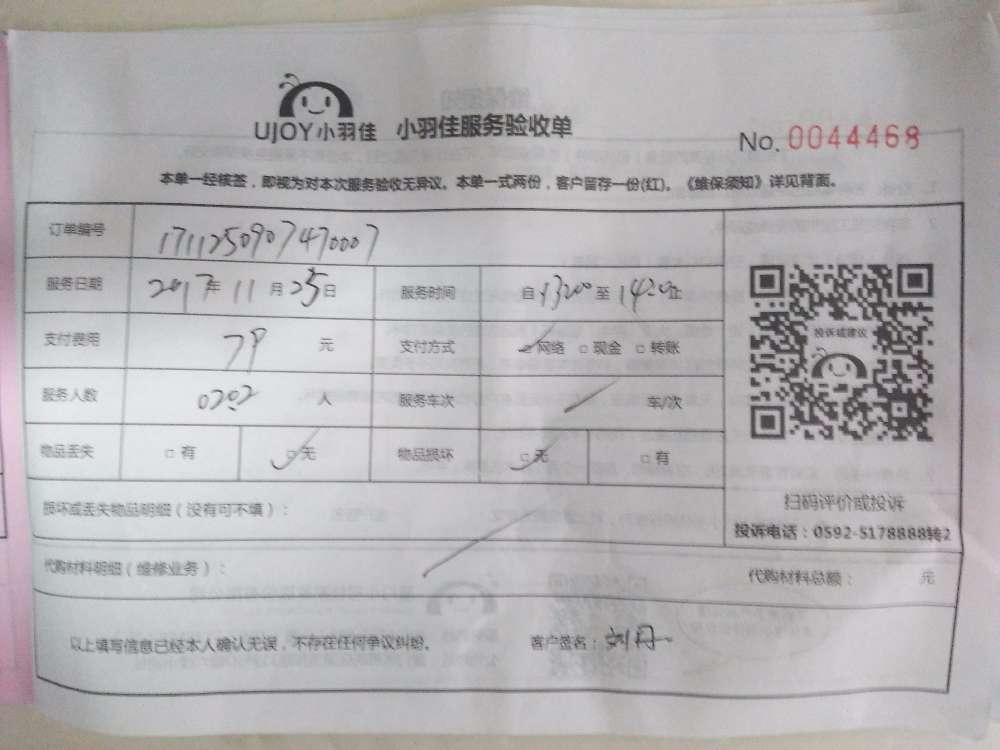 UJOY小羽佳 小羽佳服务验收单
No. 0044468
本单一经核签，即视为对本次服务验收无异议。本单一式两份，客户留存一份(红)。《维保须知》详见背面。
订单编号 1711250907470007
服务日期 2017年 11月25日 服务时间 自1320至1420止
支付费用 79 元 支付方式 ☑网络 □现金 □转账
投诉或建议
服务人数 0202 人 服务车次 / 车/次
物品丢失 □有 ☑无 物品损坏 ☑无 □有
损坏或丢失物品明细（没有可不填）：
扫码评价或投诉
投诉电话：0592-5178888转2
代购材料明细（维修业务）： 代购材料总额： 元
以上填写信息已经本人确认无误，不存在任何争议纠纷。 客户签名：刘丹